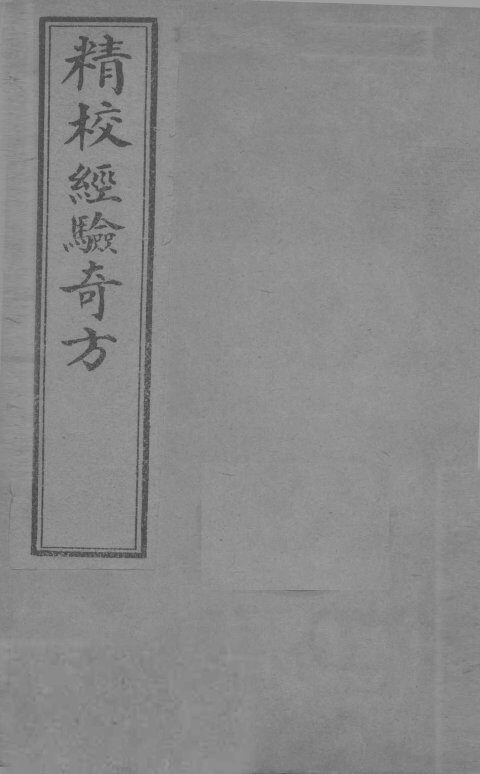 精校經驗奇方